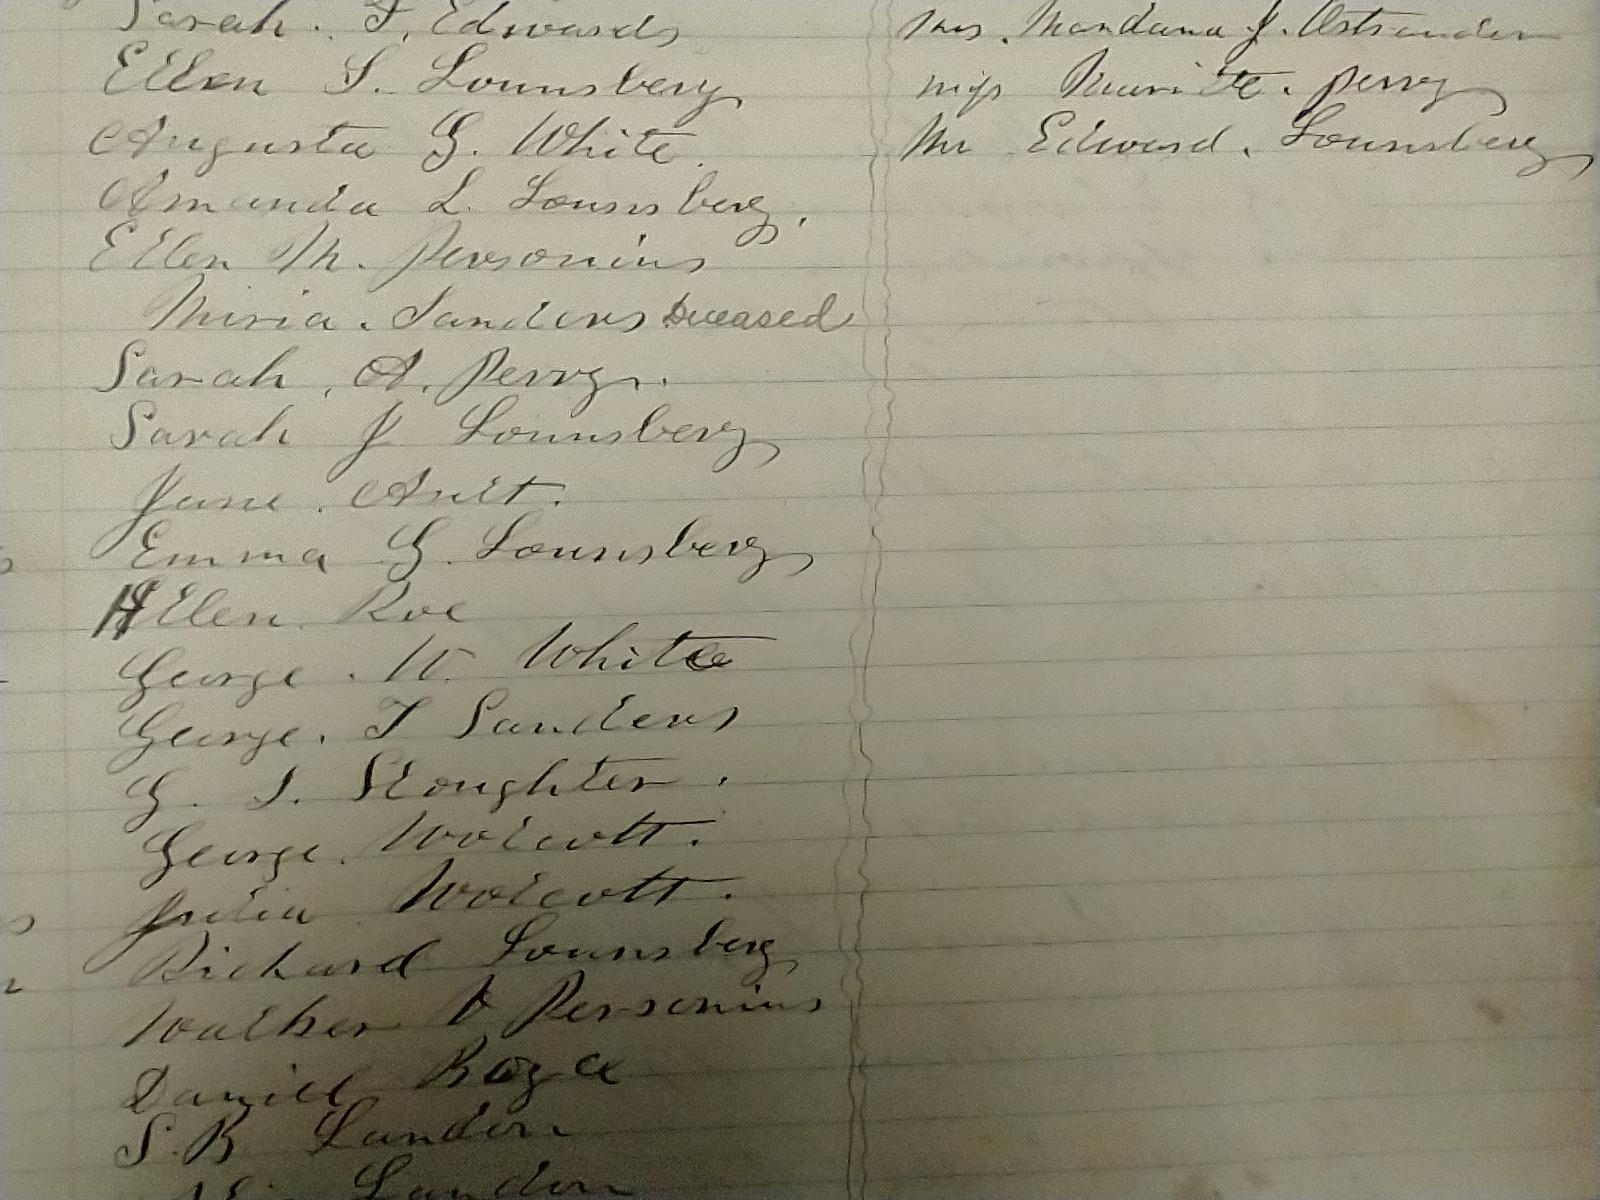 Sarah. T. Edwards
Ellen S. Lounsbery
Augusta G. White.
Amanda L. Lounsbery.
Ellen M. Personius
Miria. Sanders Deceased
Sarah. A. Perry.
Sarah J Lounsbery
Jane. Ault.
Emma G. Lounsbery
H Ellen. Roe
George. W. White
George. T Sanders
G. S. Sloughter.
George. Wolcott.
Julia Wolcott.
Richard Lounsbery
Walker V Personius
Daniel Boyce
S. B. Landon
Landon
Mrs. Mandana J. Ostrander
Miss Perry
Mr Edward. Lounsbery